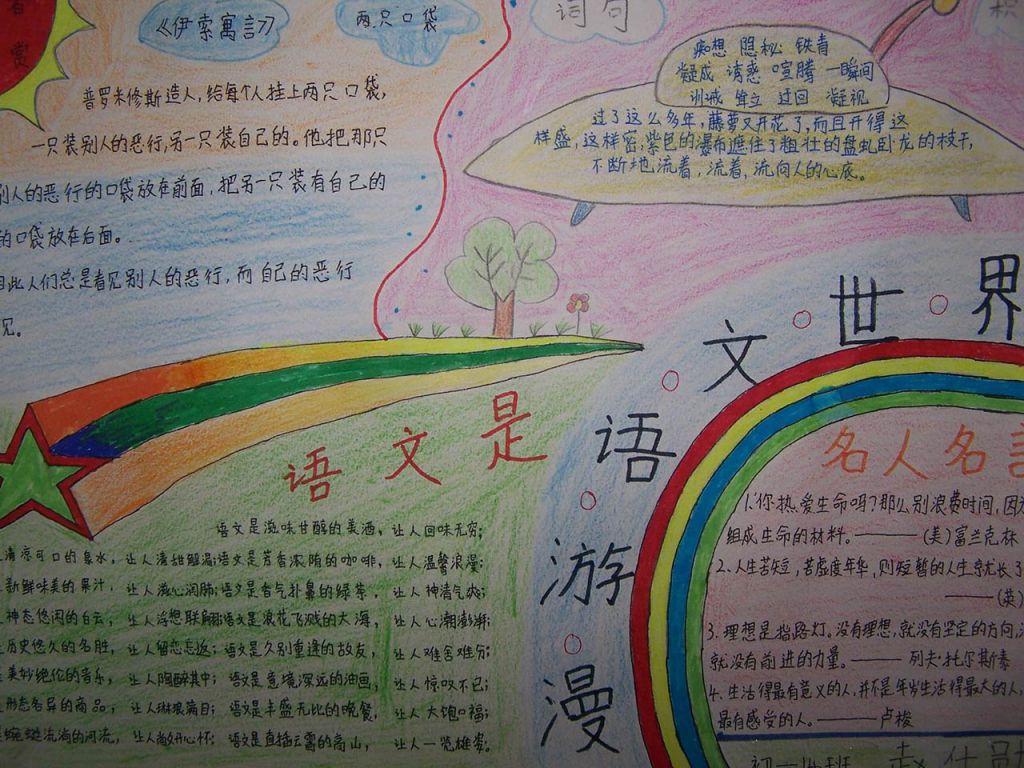 赏
《伊索寓言》
两只口袋
普罗米修斯造人,给每个人挂上两只口袋,
一只装别人的恶行,另一只装自己的。他把那只
别人的恶行的口袋放在前面,把另一只装有自己的
的口袋放在后面。
因此人们总是看见别人的恶行,而自己的恶行
见。
词句
积
痴想 隐秘 铁青
凝成 诱惑 喧腾 一瞬间
训诫 耸立 迂回 凝视
过了这么多年,藤萝又开花了,而且开得这
样盛,这样密,紫色的瀑布遮住了粗壮的盘虬卧龙的枝干,
不断地流着,流着,流向人的心底。
漫游语文世界
语文是
语文是滋味甘醇的美酒,让人回味无穷;
清凉可口的泉水,让人清甜解渴;语文是芳香浓郁的咖啡,让人温馨浪漫;
新鲜味美的果汁,让人滋心润肺;语文是香气扑鼻的绿茶,让人神清气爽;
神态悠闲的白云,让人浮想联翩;语文是浪花飞溅的大海,让人心潮澎湃;
历史悠久的名胜,让人留恋忘返;语文是久别重逢的故友,让人难舍难分;
美妙绝伦的音乐,让人陶醉其中;语文是意境深远的油画,让人惊叹不已;
形态各异的商品,让人琳琅满目;语文是丰盛无比的晚餐,让人大饱口福;
蜿蜒流淌的河流,让人敞开心怀;语文是直插云霄的高山,让人一览雄姿。
名人名言
1.你热爱生命吗?那么别浪费时间,因为
组成生命的材料。——(美)富兰克林
2.人生苦短,若虚度年华,则短暂的人生就太长了
——(英)
3.理想是指路灯。没有理想,就没有坚定的方向,没
就没有前进的力量。——列夫·托尔斯泰
4.生活得最有意义的人,并不是年岁生活得最大的人,
最有感受的人。——卢梭
初一14班